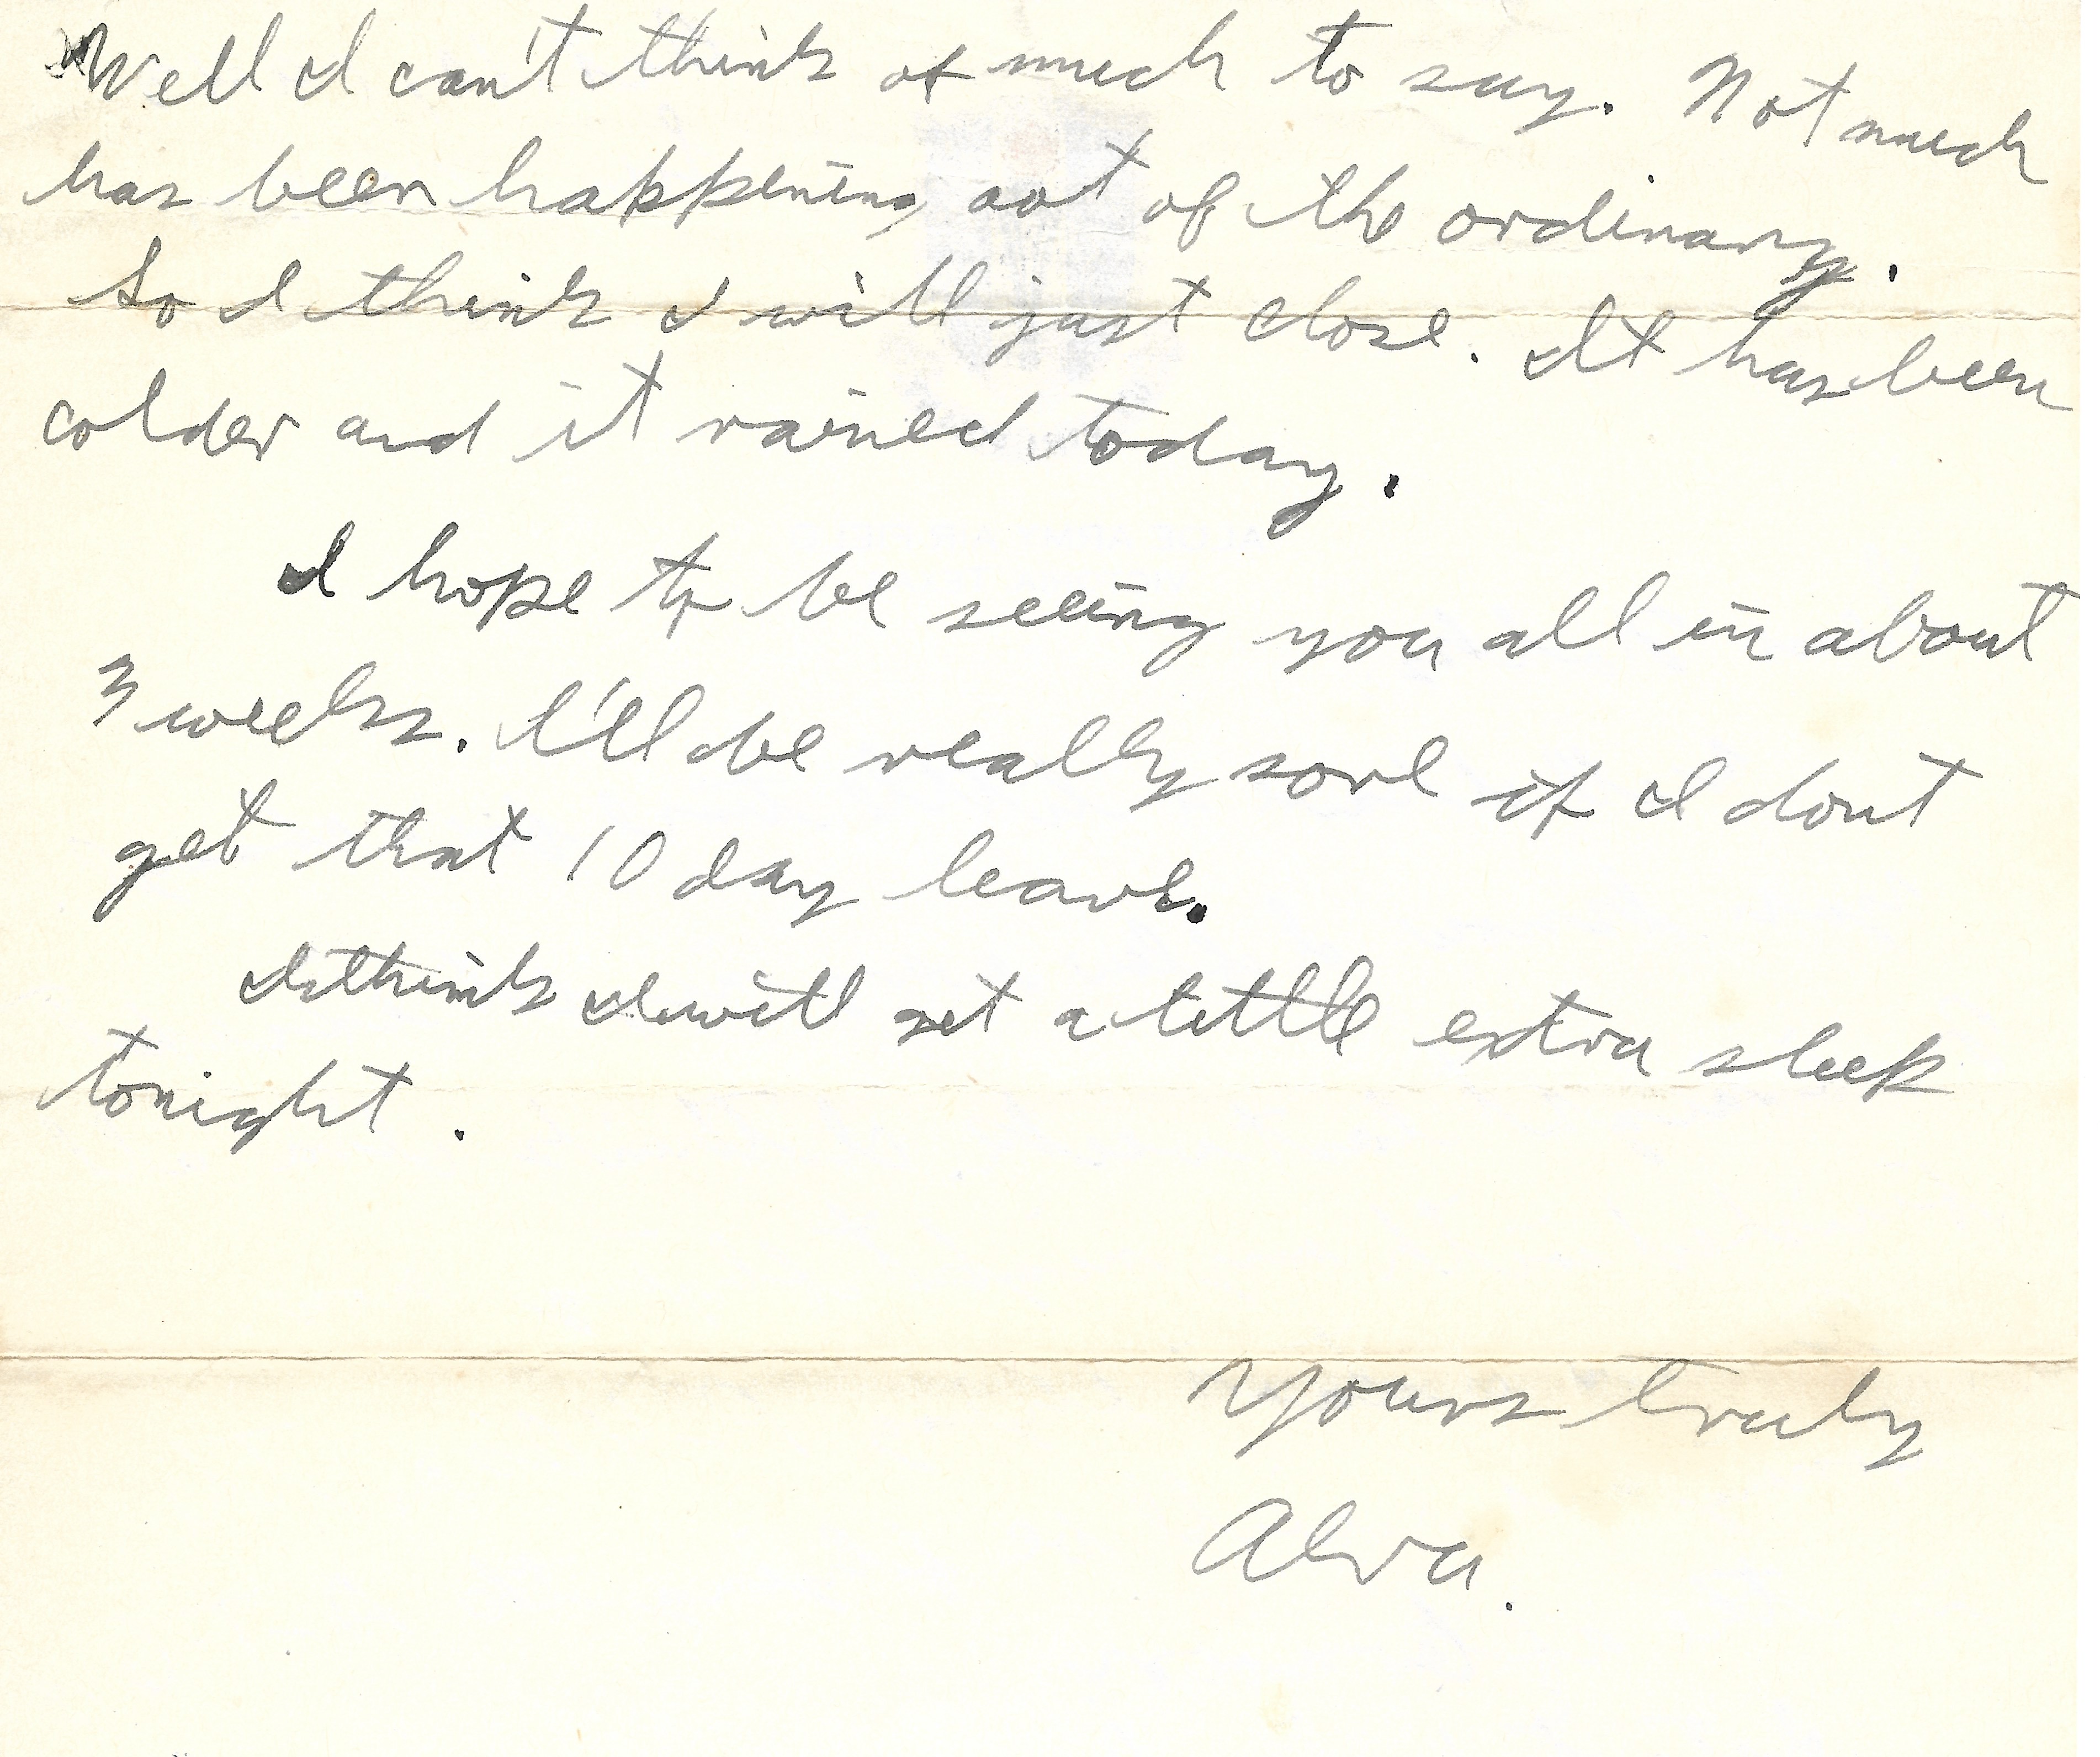 Well I can't think of much to say. Not much
has been happening out of the ordinary.
So I think I will just close. It has been
colder and it rained today.
I hope to be seeing you all in about
3 weeks. I'll be really sore if I dont
get that 10 day leave.
I think I will get a little extra sleep
tonight.
Yours truly
Alva.